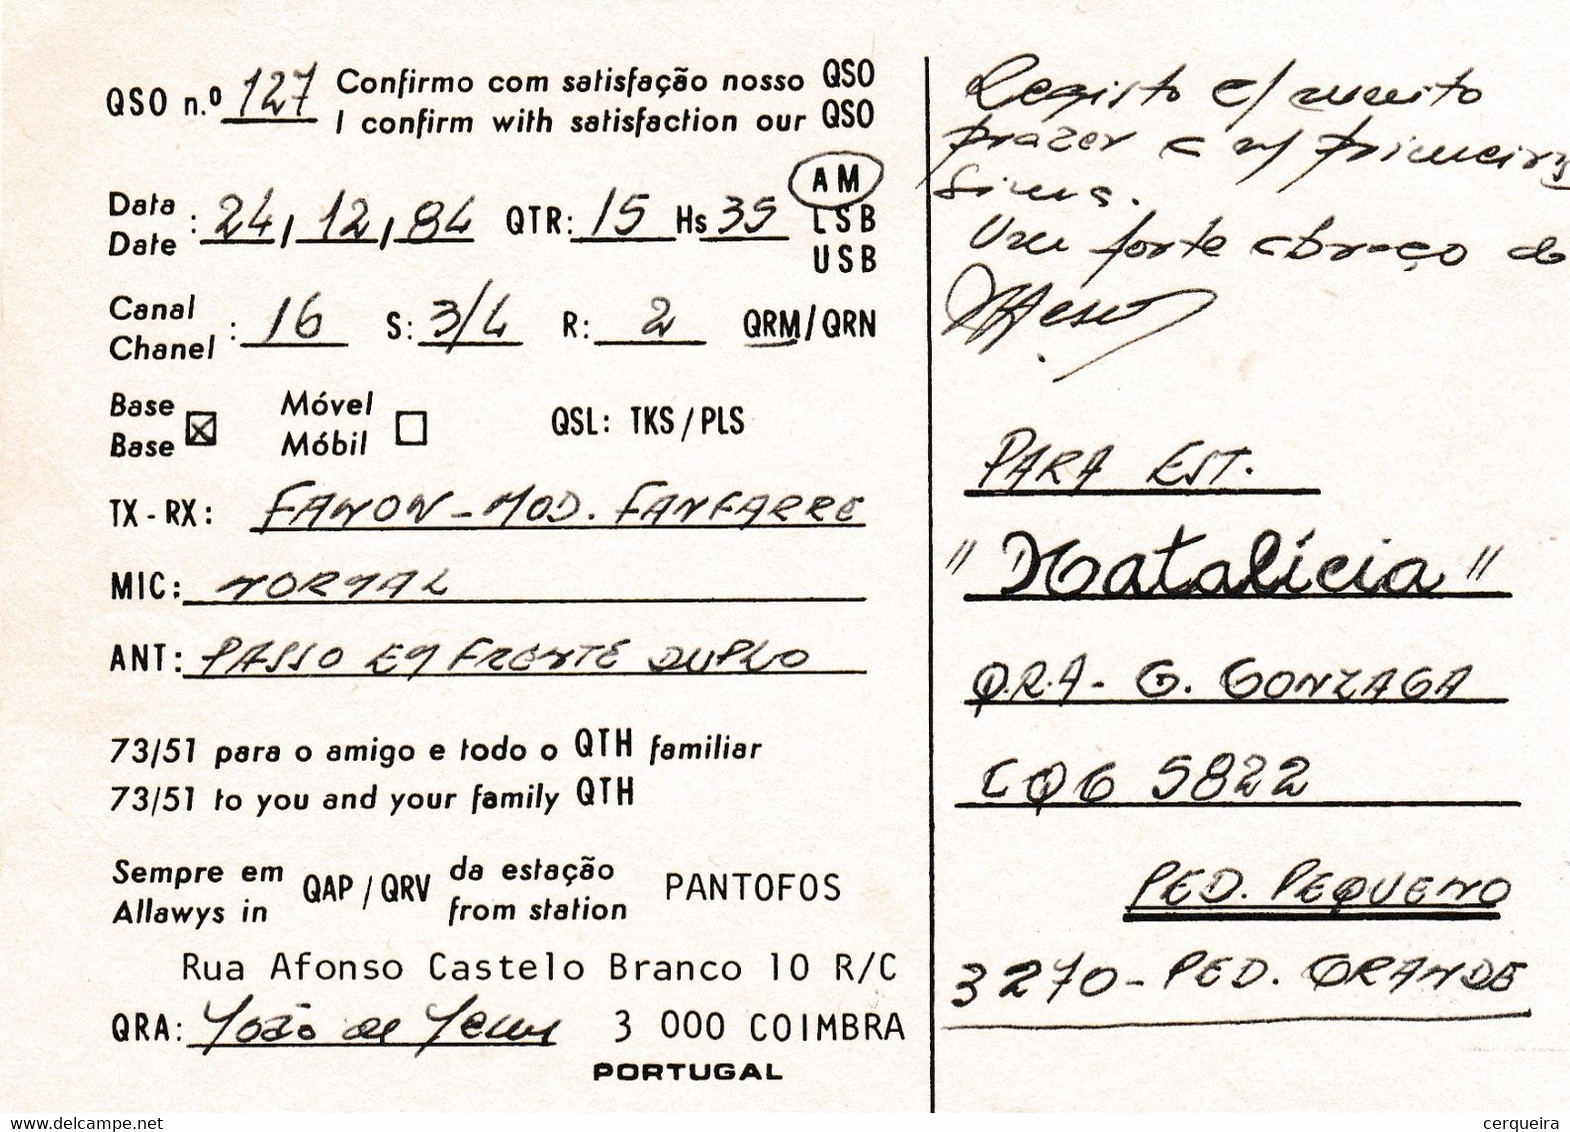 QSO n.º 127 Confirmo com satisfação nosso QSO
I confirm with satisfaction our QSO
Data
Date : 24, 12, 84 QTR: 15 Hs 35 AM
LSB
USB
Canal
Chanel : 16 S: 3/4 R: 2 QRM/QRN
Base
Base
Móvel
Móbil
QSL: TKS / PLS
TX - RX: FANON - MOD. FANFARRE
MIC: NORMAL
ANT: PASSO EM FRENTE DUPLO
73/51 para o amigo e todo o QTH familiar
73/51 to you and your family QTH
Sempre em QAP / QRV da estação PANTOFOS
Allawys in from station
Rua Afonso Castelo Branco 10 R/C
QRA: João de 3 000 COIMBRA
PORTUGAL
Registo c/ muito
prazer a n/ primeira
Um forte abraço do
PARA EST.
"Natalícia"
Q.R.A - G. GONZAGA
CQG 5822
PED. PEQUENO
3270 - PED. GRANDE
www.delcampe.net
cerqueira